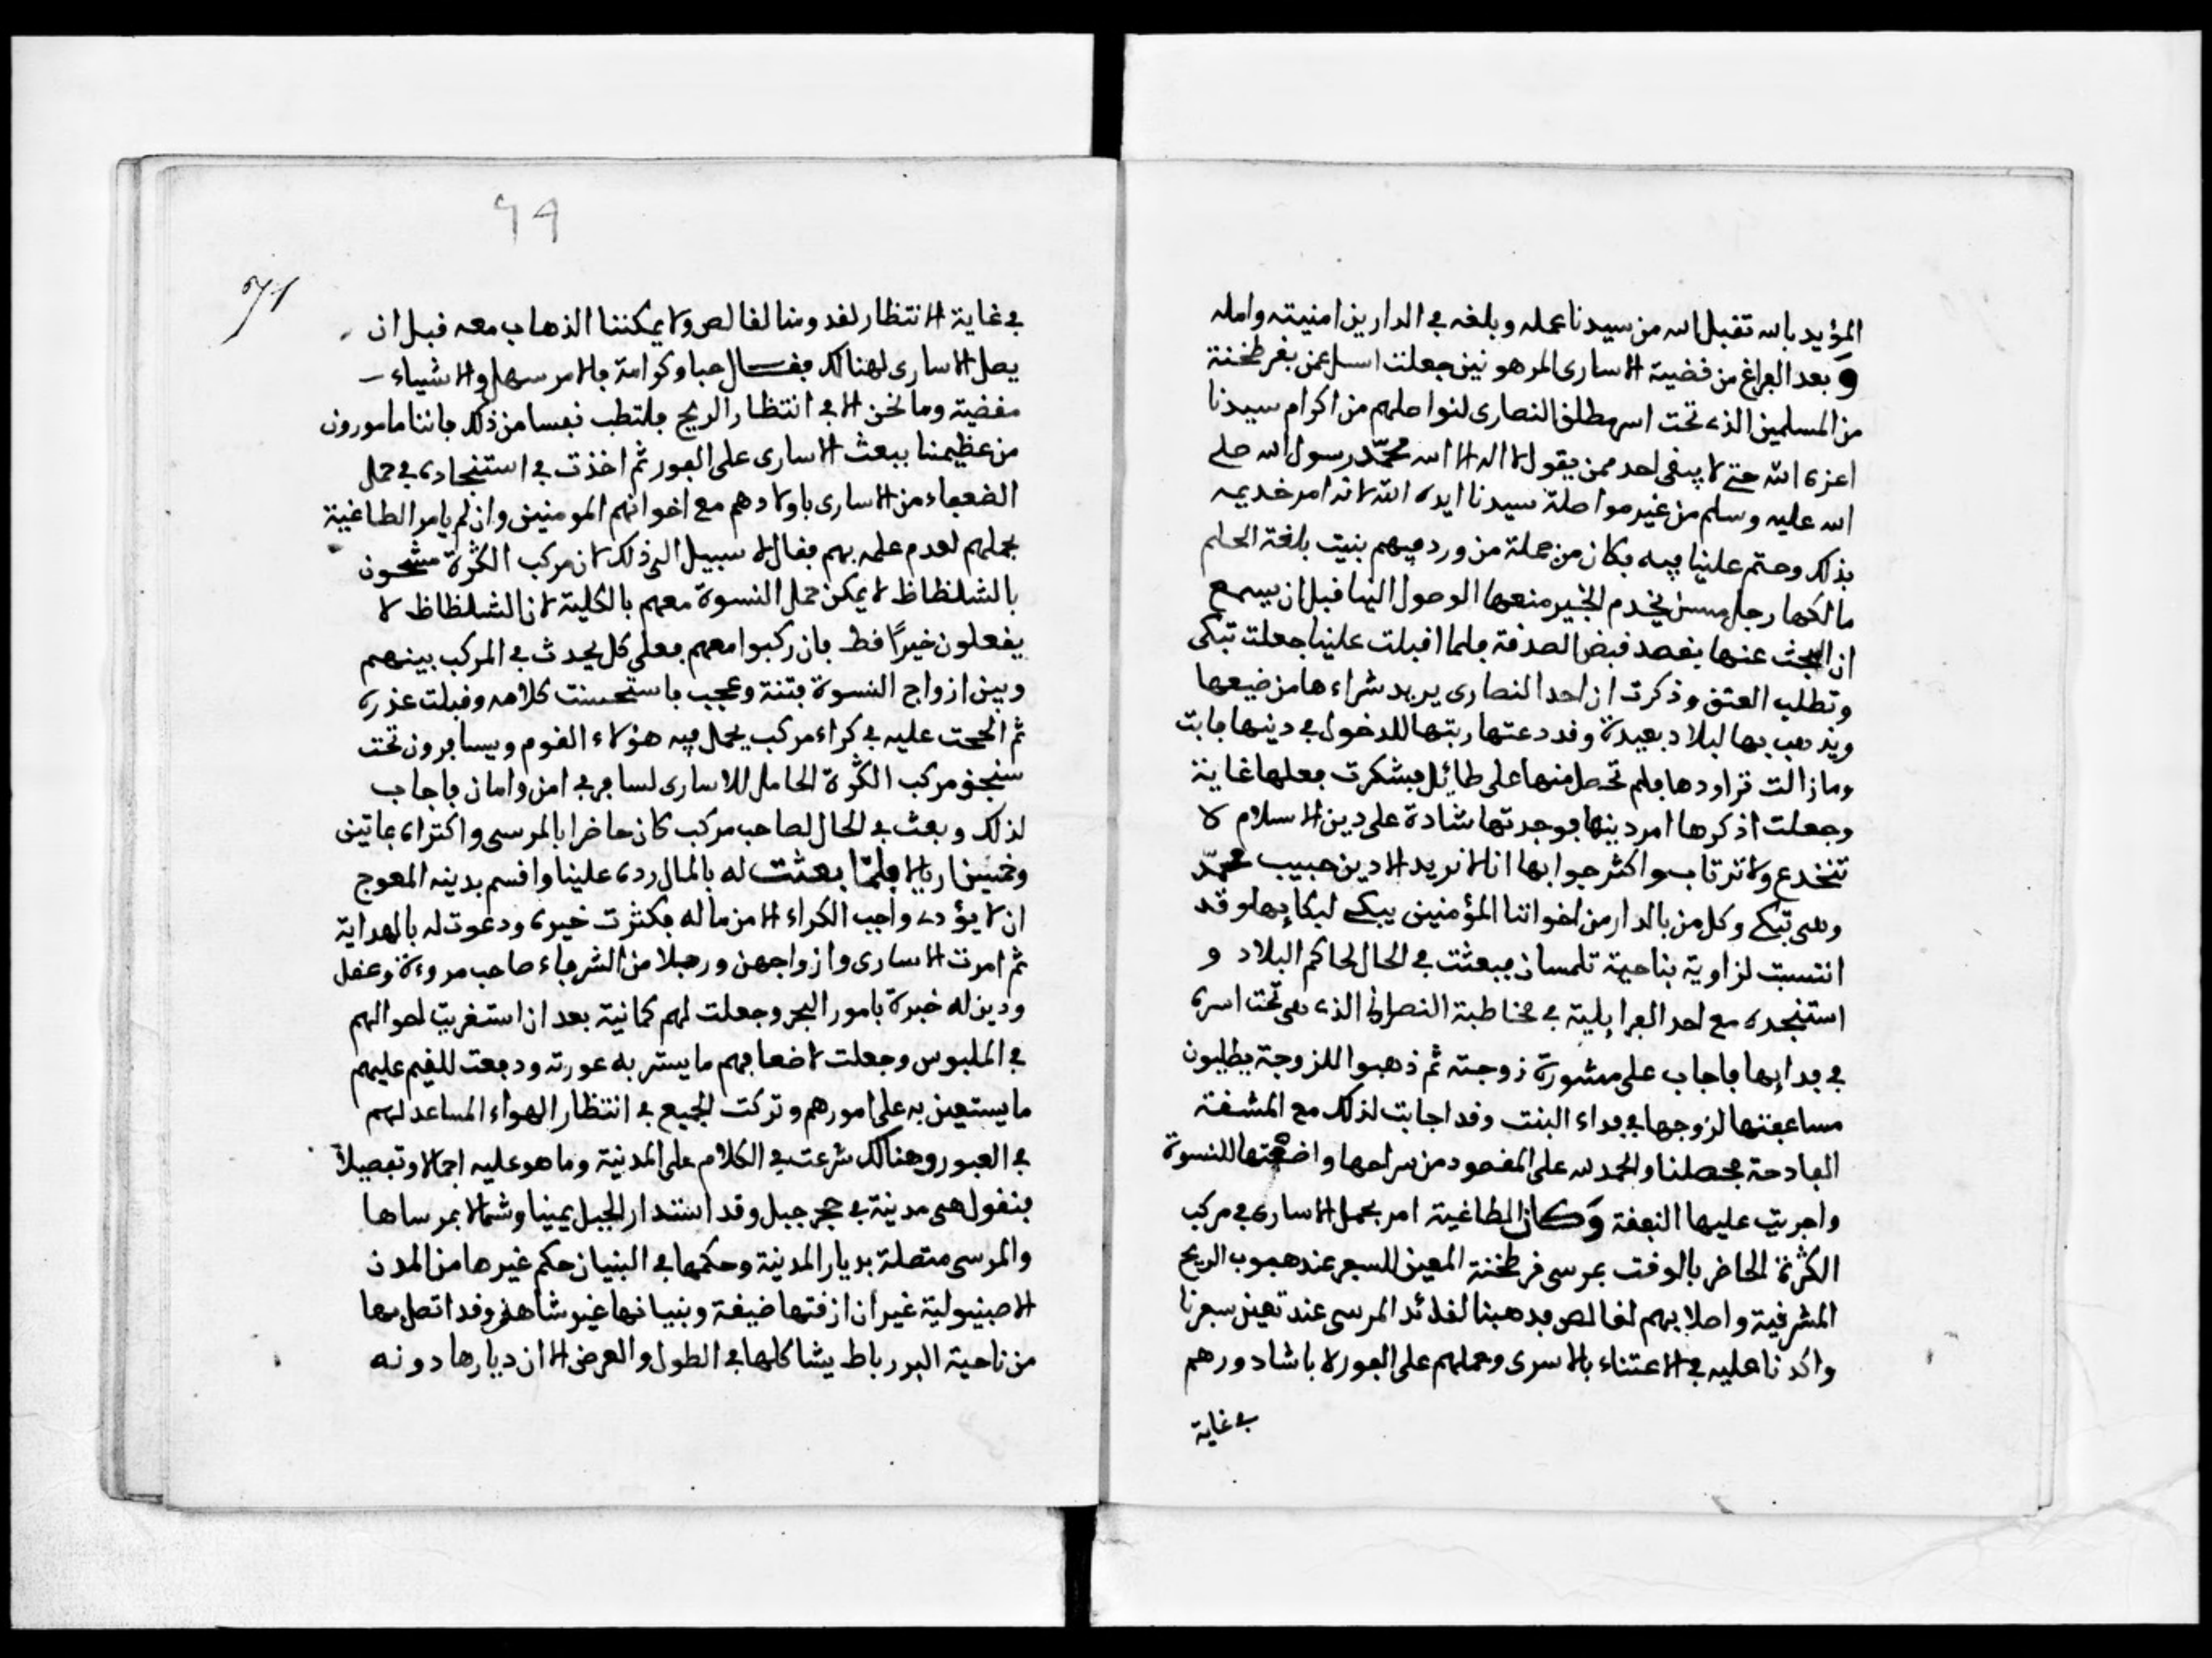 المؤيد بالله تقبل الله من سيدنا عمله وبلغه في الدارين امنيته وامله
وبعد الفراغ من قضية الاسارى المرهونين جعلت اسل عمن بقرطجنة
من المسلمين الذي تحت اسر مطلق النصارى لنواصلهم من اكرام سيدنا
اعزه الله حتى لا يبقى احد ممن يقول لا اله الا الله محمد رسول الله صلى
الله عليه وسلم من غير مواصلة سيدنا ايده الله لانه امر خديمه
بذلك وحتم علينا فيه فكان من جملة من ورد فيهم بنت بلغة الحلم
مالكها رجل مسن يخدم الخبر منعها الوصول الينا قبل ان يسمع
ان البحث عنها بقصد قبض الصدقة فلما اقبلت علينا جعلت تبكى
وتطلب العتق وذكرت ان احد النصارى يريد شراءها من ضيعها
ويذهب بها لبلاد بعيدة وقد دعتها ربتها للدخول في دينها فابت
وما زالت تراودها فلم تحصل منها على طائل فشكرت فعلها غاية
وجعلت اذكرها امر دينها فوجدتها شادة على دين الاسلام لا
تنخدع ولا ترتاب واكثر جوابها انا لا نريد الا دين حبيب محمد
وهي تبكي وكل من بالدار من اخواننا المؤمنين يبكي لبكايها وقد
انتسبت لزاوية بناحية تلمسان فبعثت في الحال لحاكم البلاد و
استنجده مع احد الفرايلية في مخاطبة النصراني الذي هي تحت اسره
في فدايها فاجاب على مشورة زوجته ثم ذهبوا للزوجة يطلبون
مساعفتها لزوجها في فداء البنت وقد اجابت لذلك مع المشقة
الفادحة فحصلنا والحمد لله على المقصود من سراحها واضفتها للنسوة
واجريت عليها النفقة وكان الطاغية امر بحمل الاسارى في مركب
الكثرة الحاضر بالوقت بمرسى قرطجنة المعين للسفر عند هبوب الريح
المشرقية واصلا بهم لقالص فذهبنا لقائد المرسى عند تعين سفرنا
واكدنا عليه في الاعتناء بالاسرى وحملهم على الفور لا باشادورهم
في غاية
٦٩
71
في غاية الانتظار لقدومنا لقالص ولا يمكننا الذهاب معه قبل ان
يصل الاسارى لهنالك فقال حبا وكرامة فالامر سهل والاشياء
مقضية وما نحن الا في انتظار الريح فلتطب نفسا من ذلك فاننا مامورون
من عظيمنا ببعث الاسارى على الفور ثم اخذت في استنجاده في حمل
الضعفاء من الاسارى باولادهم مع اخوانهم المومنين وان لم يامر الطاغية
بحملهم لعدم علمه بهم فقال لا سبيل الى ذلك لان مركب الكثرة مشحون
بالشلظاظ لا يمكن حمل النسوة معهم بالكلية لان الشلظاظ لا
يفعلون خيرًا قط فان ركبوا معهم فعلى كل يحدث في المركب بينهم
وبين ازواج النسوة فتنة وعجب فاستحسنت كلامه وقبلت عذره
ثم الححت عليه في كراء مركب يحمل فيه هؤلاء القوم ويسافرون تحت
سنجق مركب الكثرة الحامل للاسارى لسافر في امن وامان فاجاب
لذلك وبعث في الحال لصاحب مركب كان حاضرا بالمرسى واكتراه بماتين
وخمسين ريالا فلما بعثت له بالمال رده علينا واقسم بدينه المعوج
ان لا يؤدي واجب الكراء الا من ماله فكثرت خيره ودعوت له بالهداية
ثم امرت الاسارى وازواجهن ورجلا من الشرفاء صاحب مروءة وعقل
ودين له خبرة بامور البحر وجعلت لهم كمانية بعد ان استغربت احوالهم
في الملبوس وجعلت لاضعافهم ما يستر به عورته ودفعت للقيم عليهم
ما يستعين به على امورهم وتركت الجميع في انتظار الهواء المساعد لهم
في العبور وهنالك شرعت في الكلام على المدينة وما هو عليه اجمالا وتفصيلا
فنقول هي مدينة في حجر جبل وقد استدار الجبل يمينا وشمالا بمرساها
والمرسى متصلة بديار المدينة وحكمها في البنيان حكم غيرها من المدن
الاصبنيولية غير ان ازقتها ضيقة وبنيانها غير شاهق وقد اتصل بها
من ناحية البر رباط يشاكلها في الطول والعرض الا ان ديارها دونه